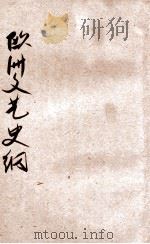 欧洲文艺史纲
mtoou.info